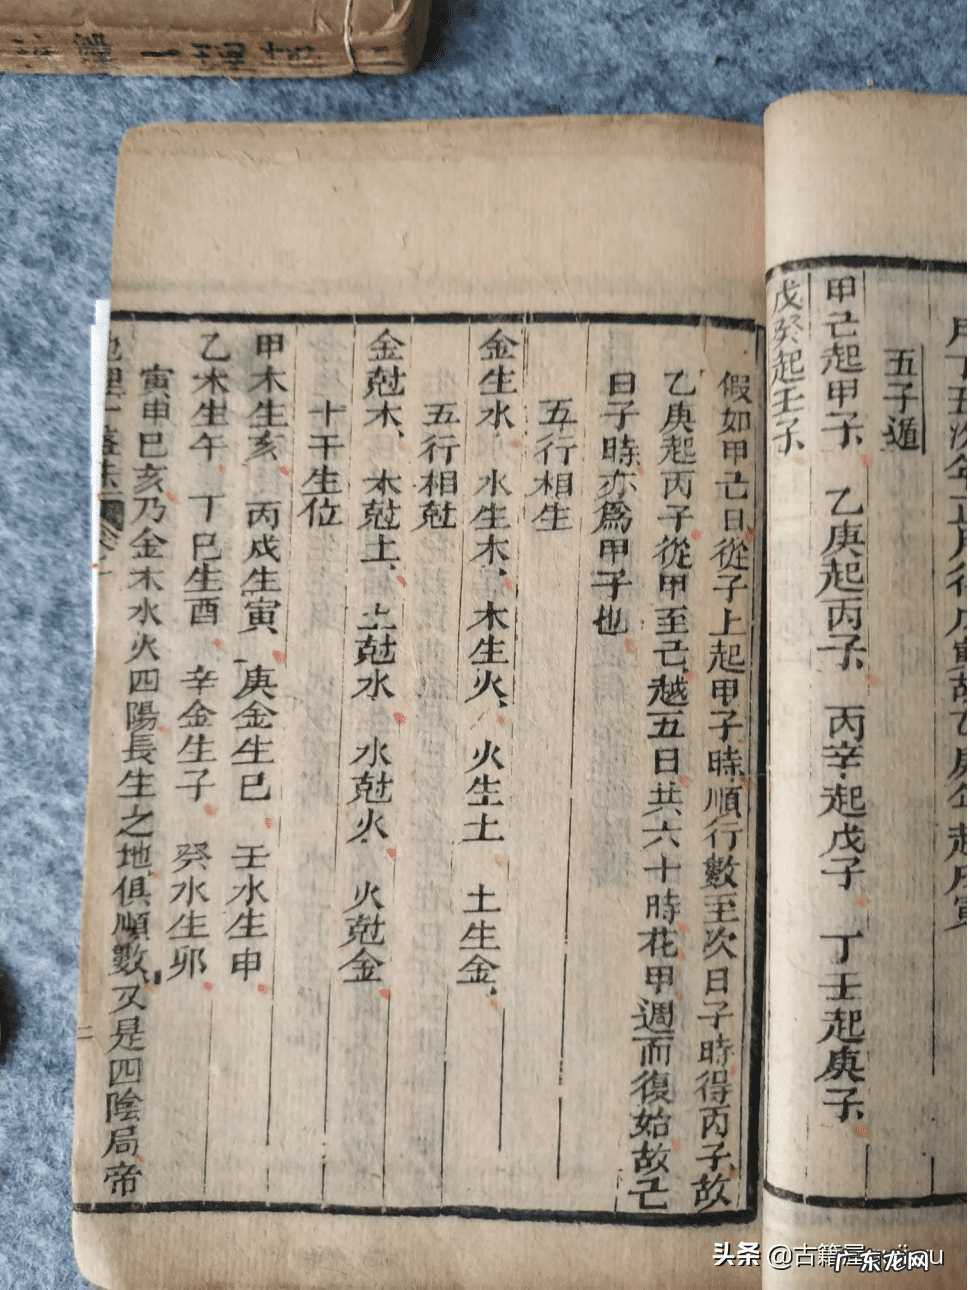 月丁丑次年正月得戊寅故乙庚年起戊寅
五子遁
甲己起甲子 乙庚起丙子 丙辛起戊子 丁壬起庚子
戊癸起壬子
假如甲己日從子上起甲子時順行數至次日子時得丙子故
乙庚起丙子從甲至己越五日共六十時花甲週而復始故己
日子時亦爲甲子也
五行相生
金生水 水生木 木生火 火生土 土生金
五行相尅
金尅木 木尅土 土尅水 水尅火 火尅金
十干生位
甲木生亥 丙戊生寅 庚金生巳 壬水生申
乙木生午 丁己生酉 辛金生子 癸水生卯
寅申巳亥乃金木水火四陽長生之地俱順數又是四陰局帝
二
头条 @古籍屋
广东龙网